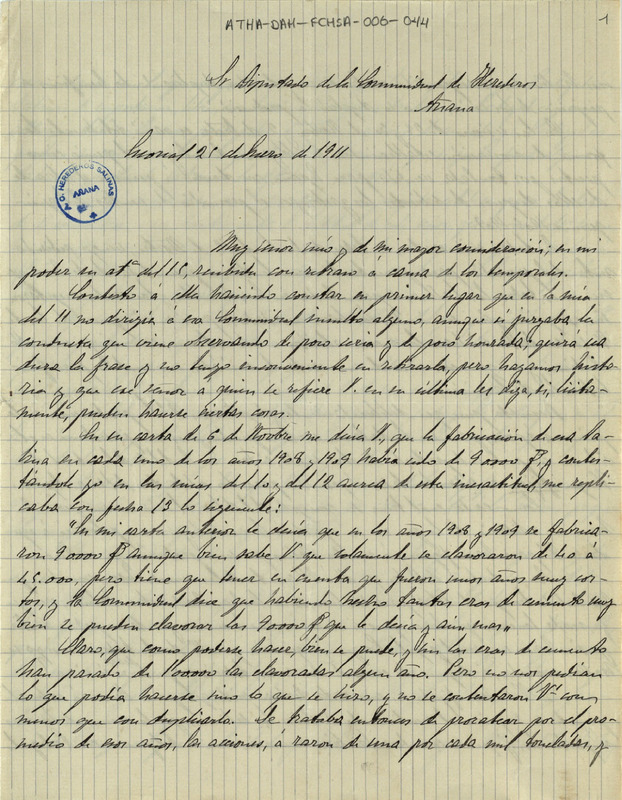 ATHA-DAH-FCHSA-006-044
1
Sr Diputado de la Comunidad de Herederos
Añana
25 de Enero de 1911
P. O. HEREDEROS SALINAS
AÑANA
Muy señor mio y de mi mayor consideración; en mi
poder su atª del 15, recibida con retraso á causa de los temporales.
Contesto á ella haciendo constar en primer lugar que en la mia
del 11 no dirigia á esa Comunidad insulto alguno, aunque si juzgaba la
conducta que viene observando de poco seria y de poco honrada; quizá sea
dura la frase y no tengo inconveniente en retirarla, pero hagamos histo-
ria y que ese señor a quien se refiere V. en su última les diga, si, licita-
mente, pueden hacerse ciertas cosas.
En su carta de 6 de Octobre me decia V, que la fabricación de esa Sa-
lina en cada uno de los años 1908 y 1909 habia sido de 90000 fs, y contes-
tandole yo en las mias del 10 y del 12 acerca de esta inexactitud, me repli-
caba con fecha 13 lo siguiente:
"En mi carta anterior le decia que en los años 1908 y 1909 se fabrica-
ron 90000 fs aunque bien sabe V. que solamente se elavoraron de 40 á
45.000, pero tiene que tener en cuenta que fueron unos años muy cor-
tos, y la Comunidad dice que habiendo hecho tantas eras de cemento muy
bien se pueden elavorar las 90000 fs que le decia y aun mas"
Claro, que como poderse hacer, bien se puede, y sin las eras de cemento
han pasado de 100000 las elavoradas algun año. Pero no nos pedian
lo que podia hacerse sino lo que se hizo, y no se contentaron Vs con
menos que con duplicarla. Se trataba entonces de prorratear por el pro-
medio de esos años, las acciones, á razon de una por cada mil toneladas, y